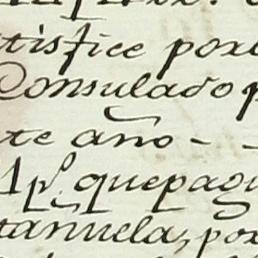 tisfice por
Consulado p
te año -
que pag
tanuela, por